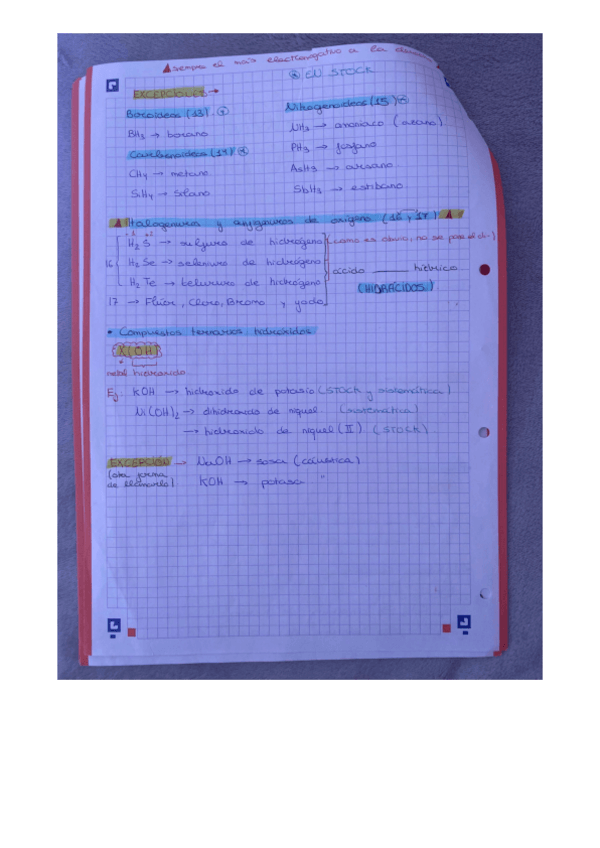 ▲ siempre el más electronegativo a la
EN STOCK
EXCEPCIONES →
Boroideos (13)
BH3 → borano
Carbonoideos (14)
CH4 → metano
SiH4 → Silano
Nitrogenoideos (15)
NH3 → amoniaco (azano)
PH3 → fosfano
AsH3 → arsano
SbH3 → estibano
▲ Halogenuros y anfígenuros de oxigeno (16, 17) ▲
16 H2S → sulfuro de hidrógeno (como es obvio, no se para el di-)
H2Se → selenuro de hidrógeno
H2Te → telururo de hidrógeno
ácido ____ hídrico
(HIDRÁCIDOS)
17 → Flúor, Cloro, Bromo y yodo
• Compuestos ternarios hidróxidos
X(OH)
metal hidroxido
Ej: KOH → hidroxido de potasio (STOCK y sistemática)
Ni(OH)2 → dihidroxido de niquel (sistemática)
→ hidroxido de niquel (II) (STOCK)
EXCEPCIÓN → NaOH → sosa (cáustica)
(otra forma
de llamarlo) KOH → potasa "